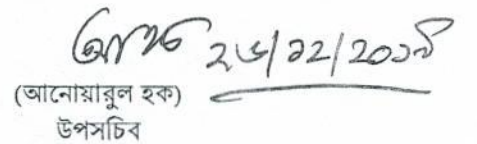 ২৬/১২/২০১৯
(আনোয়ারুল হক)
উপসচিব